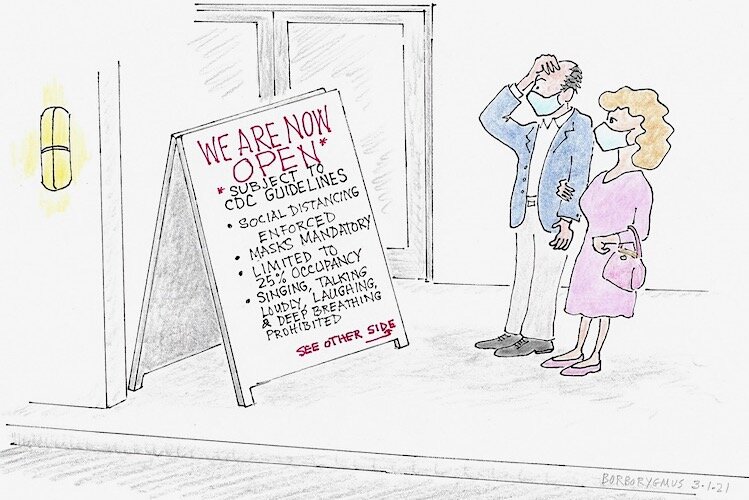 WE ARE NOW
OPEN*
*SUBJECT TO
CDC GUIDELINES
• SOCIAL DISTANCING
ENFORCED
• MASKS MANDATORY
• LIMITED TO
25% OCCUPANCY
• SINGING, TALKING
LOUDLY, LAUGHING,
& DEEP BREATHING
PROHIBITED
SEE OTHER SIDE
BORBORYGMUS 3.1.21